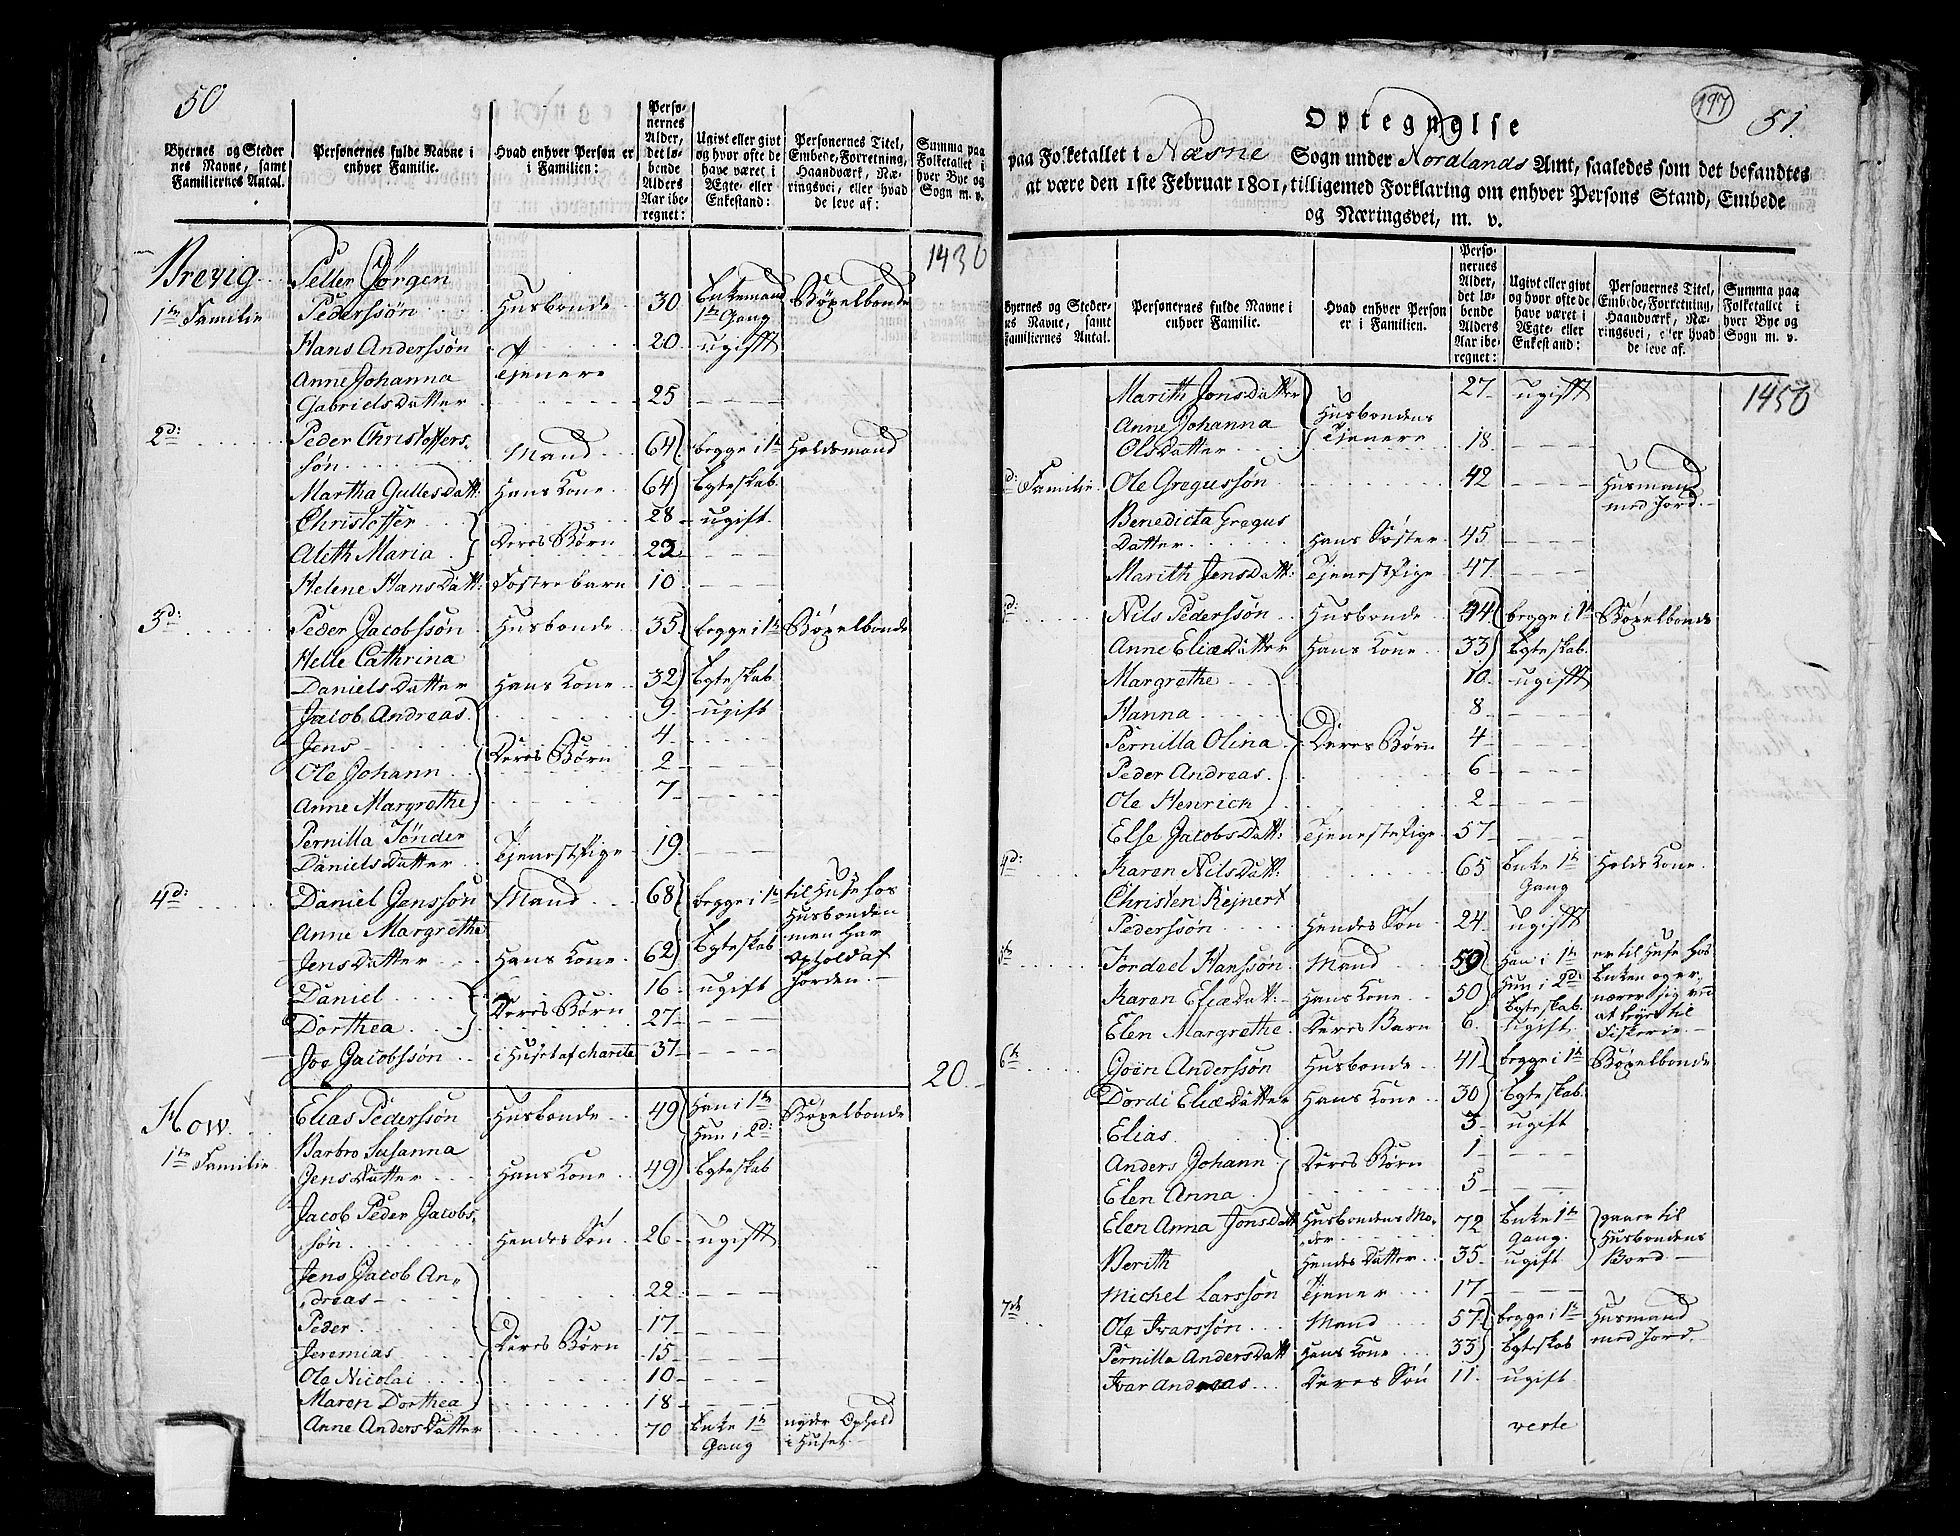 50
Byernes og Steder
nes Navne, samt
Familiernes Antal.
Personernes fulde Navne i
enhver Familie.
Hvad enhver Person er
i Familien:
Perso-
nernes
Alder,
det lø-
bende
Alders
Aar ibe-
regnet:
Ugivt eller givt
og hvor ofte de
have været i
Ægte- eller
Enkestand:
Personernes Titel,
Embede, Forretning,
Haandværk, Næ-
ringsvei, eller hvad
de leve af:
Summa paa
Folketallet i
hver Bye og
Sogn m. v.
1430
Brevig
1te Familie
Petter Jørgen
Pederssøn Husbonde 30 Enkemand 1te Gang Bøxelbonde
Hans Anderssøn 20 ugifft
Tjenere
Anne Johanna
Gabriels Datter 25
2d: Peder Christoffers-
søn Mand 64 begge i 1te Holdsmand
Martha Gulles Datt: Hans Kone 64 Egteskab
Christoffer 28 ugift
Deres Børn
Aleth Maria 23
Helene Hans Datt: Fostrebarn 10
3d: Peder Jacobssøn Husbonde 35 begge i 1te Bøxelbonde
Helle Cathrina
Daniels Datter Hans Kone 32 Egteskab
Jacob Andreas 9 ugift
Jens 4
Deres Børn
Ole Johann 2
Anne Margrethe 7
Pernilla Tönder
Daniels Datter Tjenestpige 19
4d: Daniel Jenssøn Mand 68 begge i 1te til Huse hos
Husbonden
Anne Margrethe men har
Jens Datter Hans Kone 62 Egteskab Ophold af
Daniel 16 ugift Jorden
Deres Børn
Dorthea 27
Joe Jacobssøn i Huset af charite 37
20
How
1te Familie
Elias Pederssøn Husbonde 49 Han i 1te Bøxelbonde
Hun i 2d:
Barbro Susanna
Jens Datter Hans Kone 49 Egteskab
Jacob Peder Jacobs-
søn Hendes Søn 26 ugifft
Jens Jacob An-
dreas 22
Peder 17
Deres Børn
Jeremias 15
Ole Nicolai 10
Maren Dorthea 18
Anne Anders Datter 70 Enke 1te nyder Ophold
Gang i Huset
197
51.
Optegnelse
paa Folketallet i Næsne Sogn under Nordlands Amt, saaledes som det befandtes
at være den 1ste Februar 1801, tilligemed Forklaring om enhver Persons Stand, Embede
og Næringsvei, m. v.
Byernes og Steder-
nes Navne, samt
Familiernes Antal.
Personernes fulde Navne i
enhver Familie.
Hvad enhver Person
er i Familien.
Perso-
nernes
Alder,
det lø-
bende
Alders
Aar ibe-
regnet:
Ugivt eller givt
og hvor ofte de
have været i
Ægte- eller
Enkestand:
Personernes Titel,
Embede, Forretning,
Haandværk, Næ-
ringsvei, eller hvad
de leve af.
Summa paa
Folketallet i
hver Bye og
Sogn m. v.
1450
Marith Jons Datter 27 ugifft
Husbondens
Anne Johanna Tjenere
Ols Datter 18
d: Familie Ole Gregussøn 42 Husmand
med Jord
Benedicta Gregus
Datter Hans Søster 45
Marith Jens Datt: Tjenestpige 47
d: Nils Pederssøn Husbonde 34 begge i 1te Bøxelbonde
Anne Eliæ Datter Hans Kone 33 Egteskab
Margrethe 10 ugifft
Hanna 8
Pernilla Olina Deres Børn 4
Peder Andreas 6
Ole Henrich 2
Else Jacobs Datt: Tjenestepige 57
4d: Karen Nils Datt: 65 Enke 1te Holds Kone
Gang
Christen Rejnert
Pederssøn Hendes Søn 24 ugifft
5te Tordeel Hanssøn Mand 59 Han i 1te er til Huse hos
Hun i 2d: Enken og er-
Karen Eliæ Datt: Hans Kone 50 Egteskab nærer sig ved
Elen Margrethe Deres Barn 6 ugift Fiskerie
6te Joen Anderssøn Husbonde 41 begge i 1te Bøxelbonde
Dordi Eliæ Datter Hans Kone 30 Egteskab
Elias 3 ugift
Anders Johann Deres Børn 1
Elen Anna 5
Elen Anna Jons Datt Husbondens Mo- 72 Enke 1te gaaer til
der Gang Husbondens
Berith Hendes Datter 35 ugift Bord
Michel Larssøn Tjener 17
7de Ole Ivarssøn Mand 57 begge i 1te Husmand
Pernilla Anders Datt Hans Kone 33 Egteskab med Jord
Ivar Andreas Deres Søn 11 ugift
verte